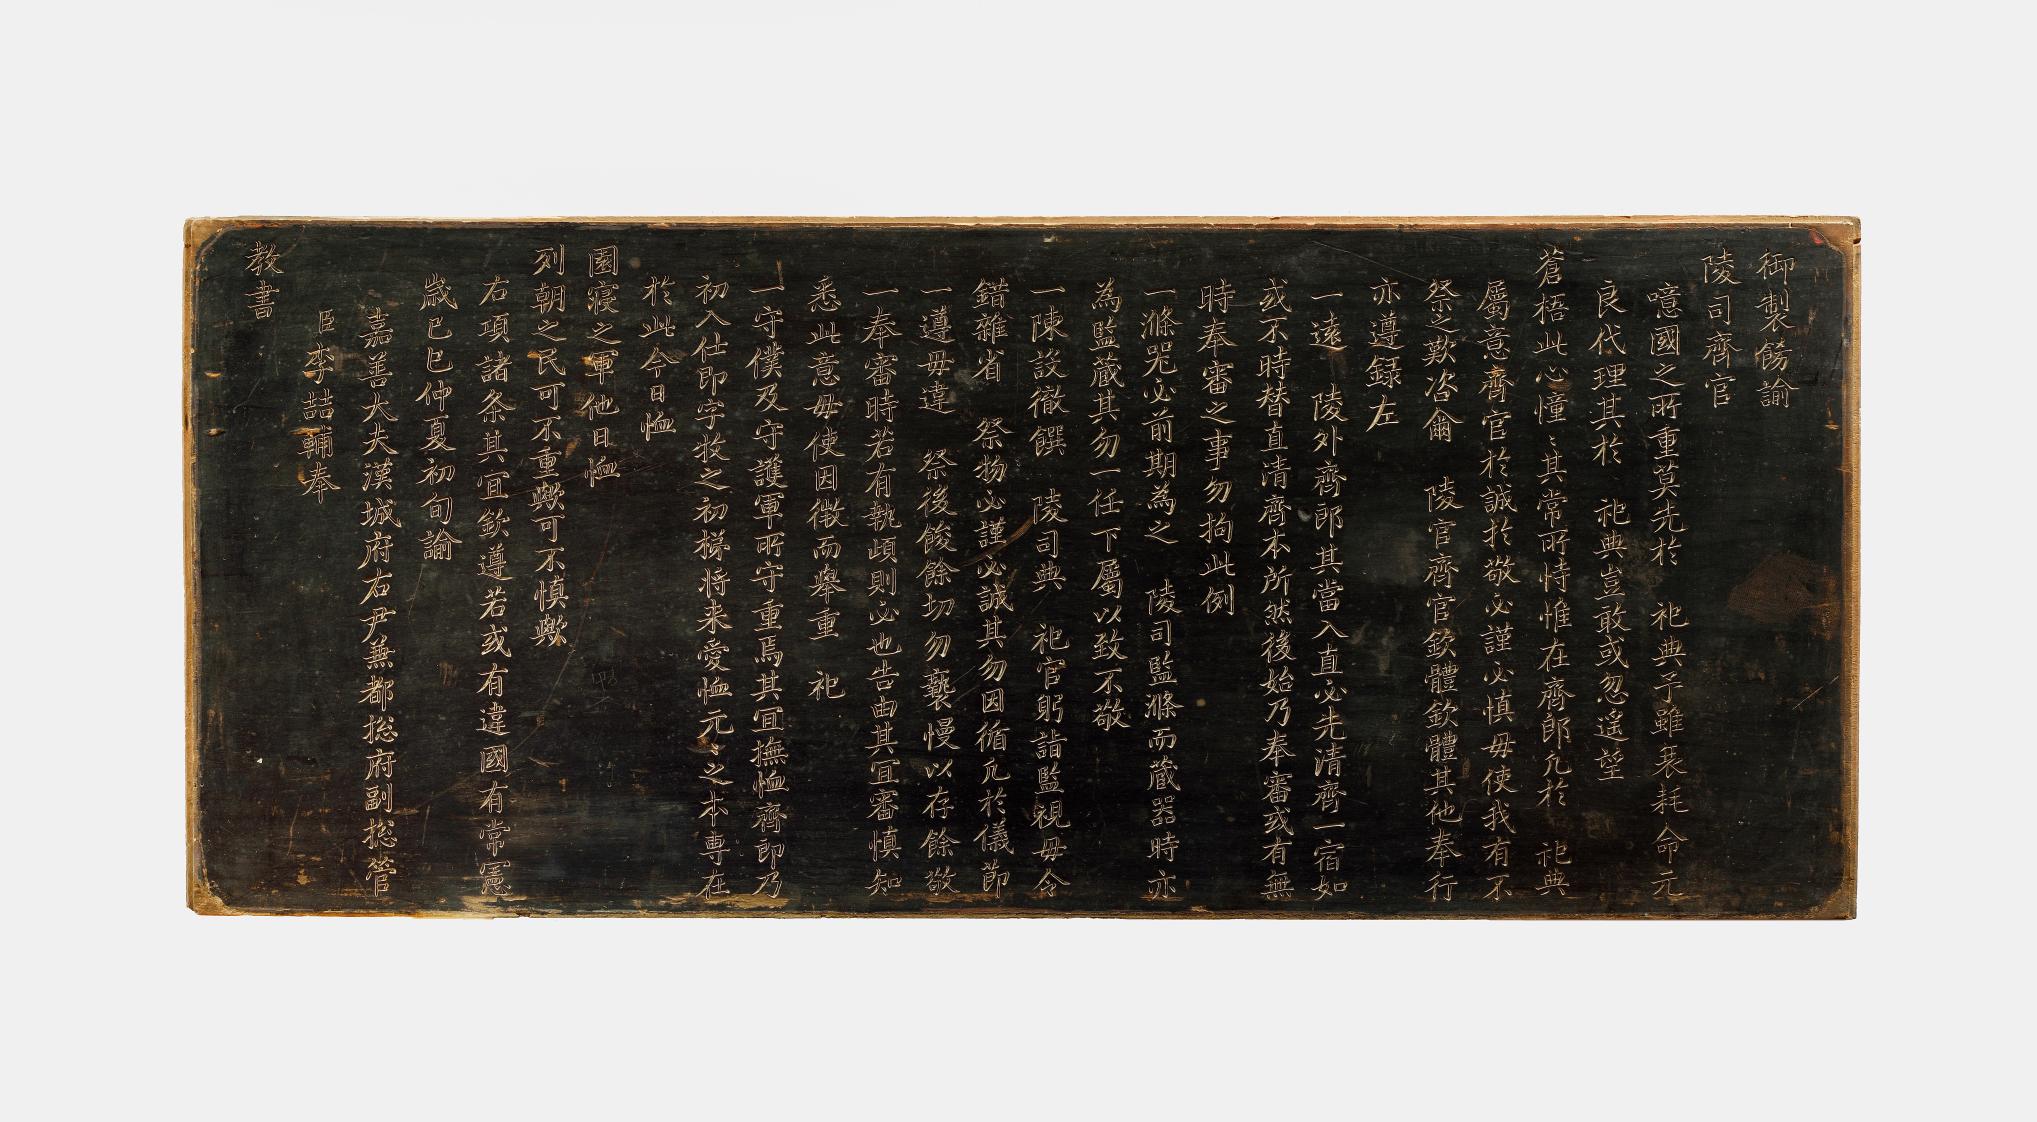 御製飭諭
陵司齋官
噫國之所重莫先於　祀典予雖衰耗命元
良代理其於　祀典豈敢或忽遙望
蒼梧此心憧〻其常所恃惟在齋郎凡於　祀典
屬意齋官於誠於敬必謹必慎毋使我有不
祭之歎咨爾　陵官齋官欽體欽體其他奉行
亦遵録左
一遠　陵外齋郎其當入直必先清齋一宿如
或不時替直清齋本所然後始乃奉審或有無
時奉審之事勿拘此例
一滌器必前期為之　陵司監滌而蔵器時亦
為監蔵其勿一任下屬以致不敬
一陳設徹饌　陵司典　祀官躬詣監視毋令
錯雜省　祭物必謹必誠其勿因循凡於儀節
一遵毋違　祭後餕餘切勿褻慢以存餘敬
一奉審時若有執頉則必也告由其宜審慎知
悉此意毋使因微而舉重　祀
一守僕及守護軍所守重焉其宜撫恤齋郎乃
初入仕即字牧之初梯将来愛恤元〻之本專在
於此今日恤
園寢之軍他日恤
列朝之民可不重歟可不慎歟
右項諸条其宜欽遵若或有違國有常憲
歲己巳仲夏初旬諭
嘉善大夫漢城府右尹兼都摠府副摠管
臣李喆輔奉
教書